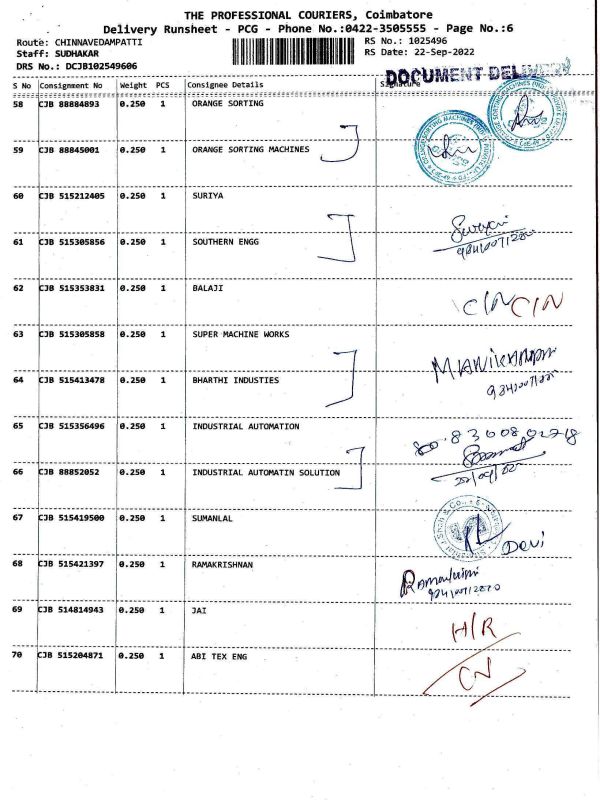 THE PROFESSIONAL COURIERS, Coimbatore
Delivery Runsheet - PCG - Phone No.:0422-3505555 - Page No.:6
Route: CHINNAVEDAMPATTI RS No.: 1025496
Staff: SUDHAKAR RS Date: 22-Sep-2022
DRS No.: DCJB102549606
DOCUMENT DELIVERY
S No Consignment No Weight PCS Consignee Details Signature
58 CJB 88884893 0.250 1 ORANGE SORTING
59 CJB 88845001 0.250 1 ORANGE SORTING MACHINES
60 CJB 515212405 0.250 1 SURIYA
61 CJB 515305856 0.250 1 SOUTHERN ENGG
62 CJB 515353831 0.250 1 BALAJI
C/N C/N
63 CJB 515305858 0.250 1 SUPER MACHINE WORKS
64 CJB 515413478 0.250 1 BHARTHI INDUSTIES
65 CJB 515356496 0.250 1 INDUSTRIAL AUTOMATION
66 CJB 88852052 0.250 1 INDUSTRIAL AUTOMATIN SOLUTION
67 CJB 515419500 0.250 1 SUMANLAL
Devi
68 CJB 515421397 0.250 1 RAMAKRISHNAN
69 CJB 514814943 0.250 1 JAI
H/R
70 CJB 515204871 0.250 1 ABI TEX ENG